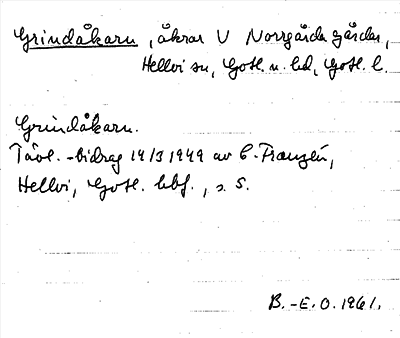 Grindåkarn, åkrar V Norrgårda gårdar,
Hellvi sn, Gotl. n. hd, Gotl. l.
Grindåkarn.
Tävl.-bidrag 14/3 1949 av C. Franzén,
Hellvi, Gotl. hbf., s. 5.
B.-E.O. 1961.